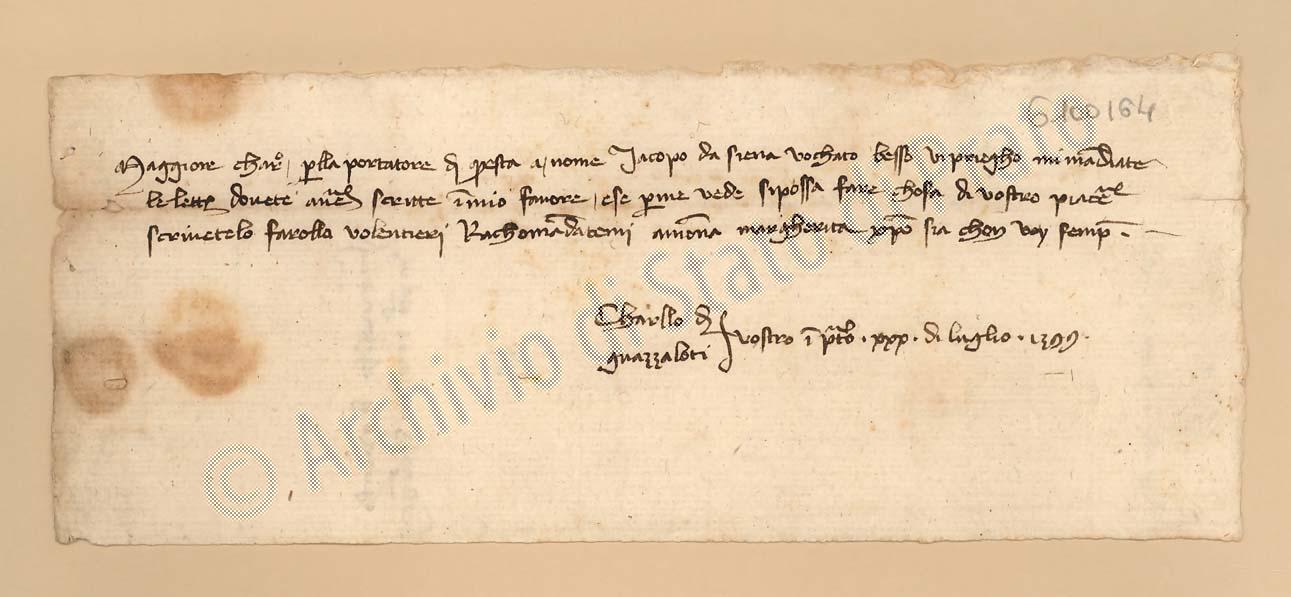 6100164
Maggiore charo, perlla portatore di questa a nome Jacopo da siena vochato besso vi priegho mi mandiate
le lett dovete aver scritte in mio favore, e se per me vede si possa fare chosa di vostro piacer
scrivetelo farollo volentieri Rachomandatemi a monna margherita xpo sia chon voy semp.
Charllo di
guazzaloti
vostro in prato. xxx. di luglio. 1399.
© Archivio di Stato di Prato